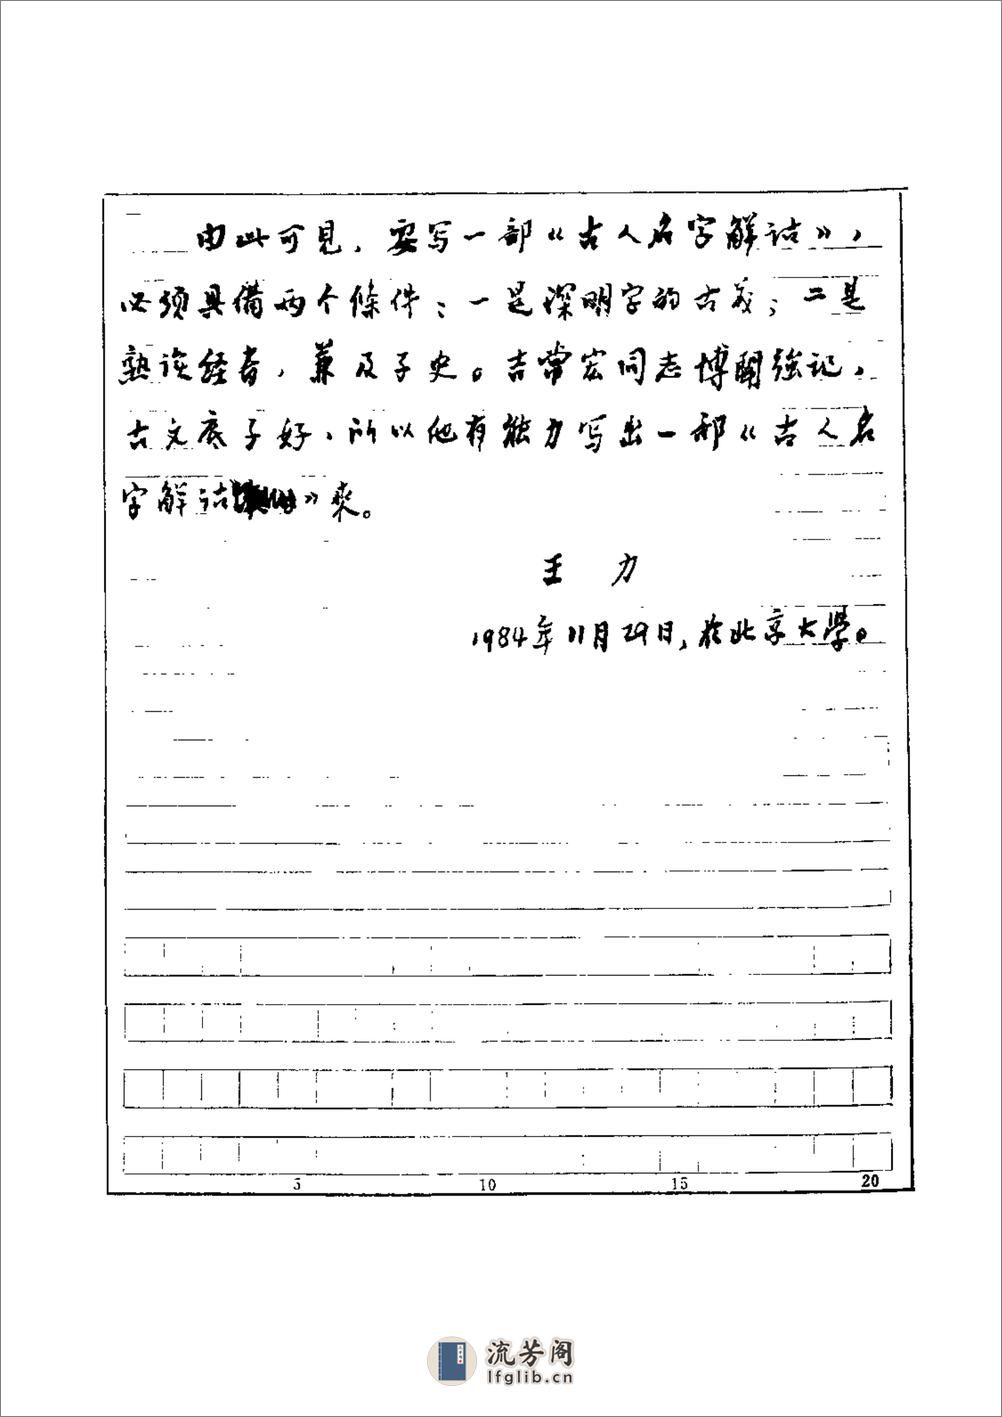 由此可見，要写一部《古人名字解詁》，
必须具備两个條件：一是深明字的古义；二是
熟读经书，兼及子史。吉常宏同志博闻強记，
古文底子好，所以他有能力写出一部《古人名
字解诂》来。
王 力
1984年11月29日，於北京大學。
5 10 15 20
流芳阁
lfglib.cn